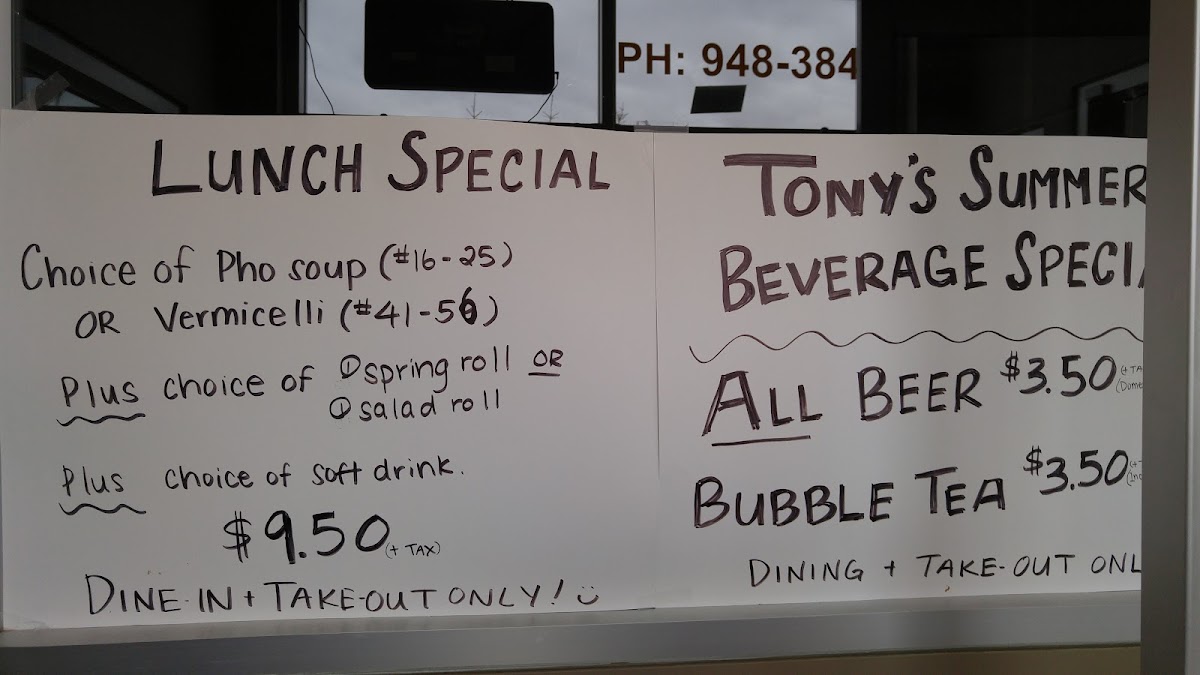 PH: 948-384
LUNCH SPECIAL
Choice of Pho soup (#16-25)
OR Vermicelli (#41-56)
Plus choice of ① spring roll OR
① salad roll
Plus choice of soft drink.
$9.50 (+ TAX)
DINE-IN + TAKE-OUT ONLY! ☺
TONY'S SUMMER
BEVERAGE SPECI
ALL BEER $3.50 (+ TA
(Dome
BUBBLE TEA $3.50
DINING + TAKE-OUT ONL